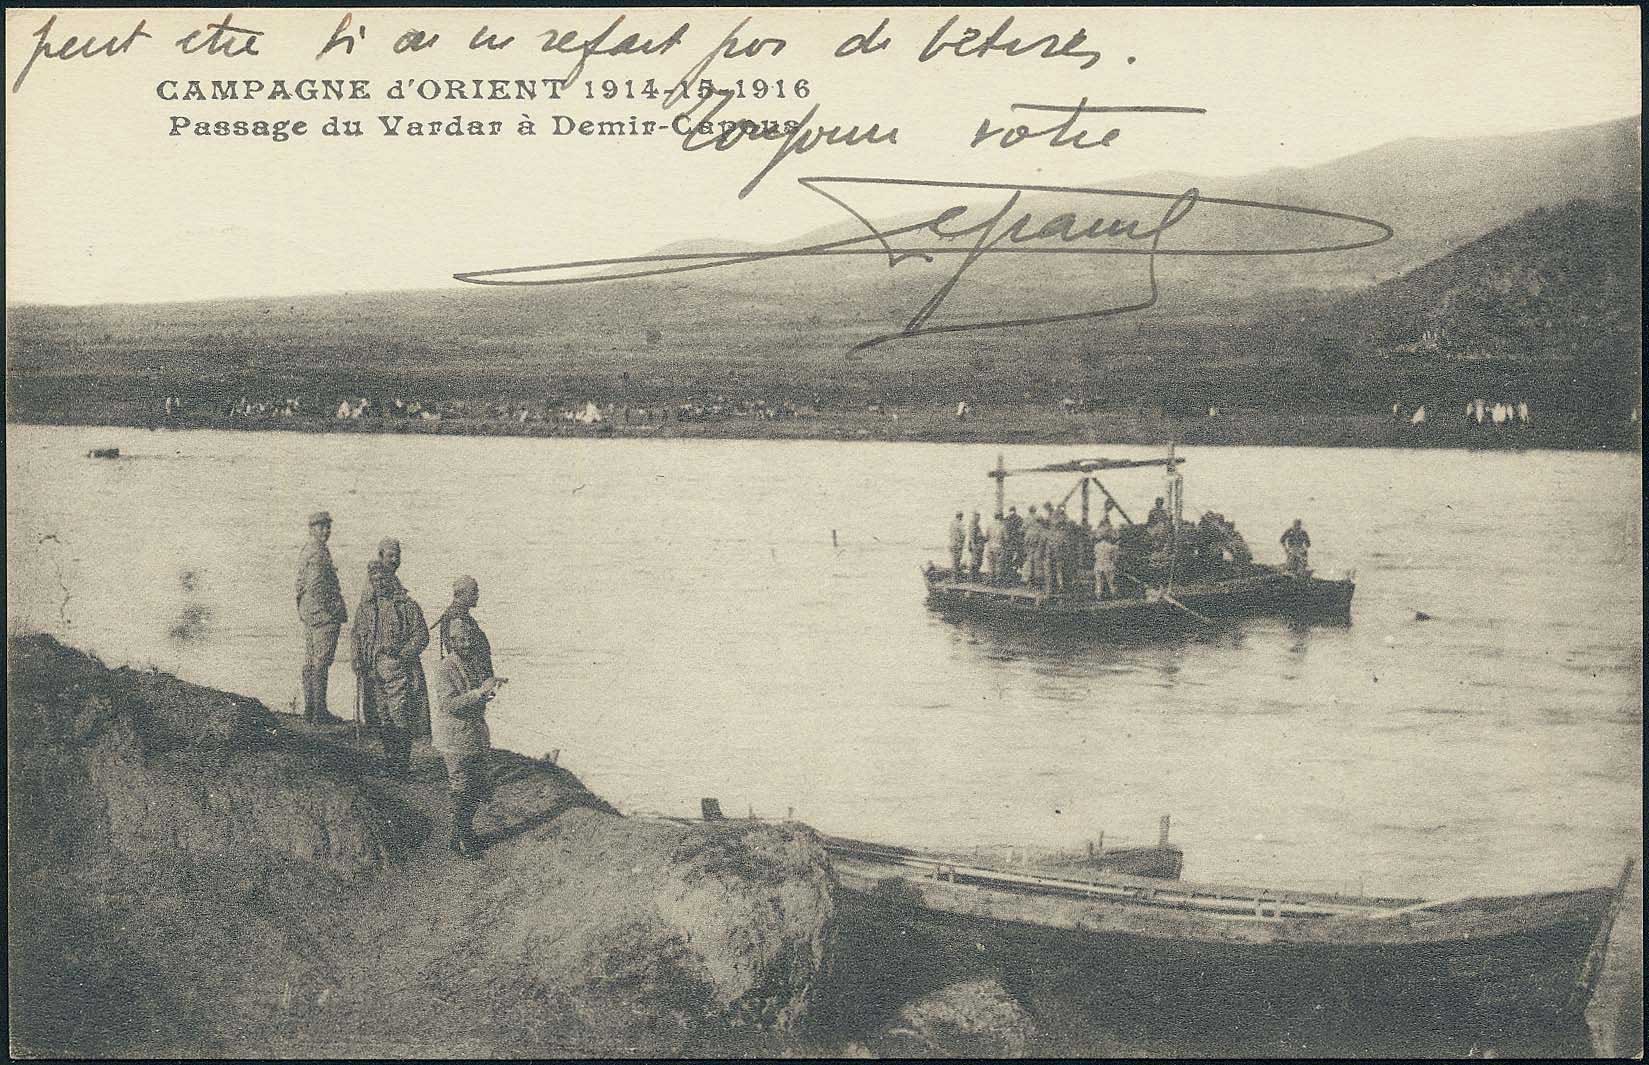 peut etre si on ne refait pas de bêtises.
CAMPAGNE d'ORIENT 1914-15-1916
Passage du Vardar à Demir-Capous
Toujours votre